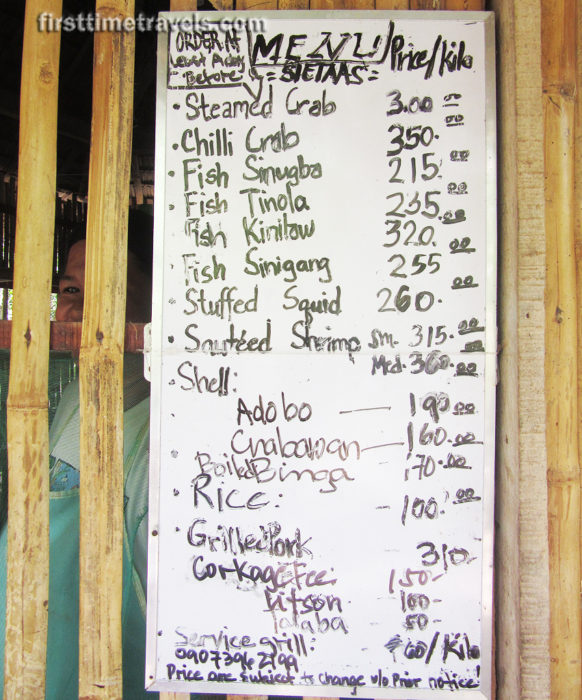 firsttimetravels.com
ORDER At MENU Price/Kilo
Before =SIETAAS=
• Steamed Crab 3.00 00
• Chilli Crab 350.00
• Fish Sinugba 215.00
• Fish Tinola 235.00
Fish Kinilaw 320.00
• Fish Sinigang 255 00
• Stuffed Squid 260.00
• Sautéed Shrimp Sm. 315.00
Med. 360.00
• Shell:
Adobo — 190 00
Cnabawan — 160.00
Boiled Binga 170.00
• Rice: - 100.00
• Grilled Pork 310.
Corkage Fee: 150-
Litson 100-
Talaba 50-
Service grill: 60/Kilo
Price are subject to change w/o Prior notice!